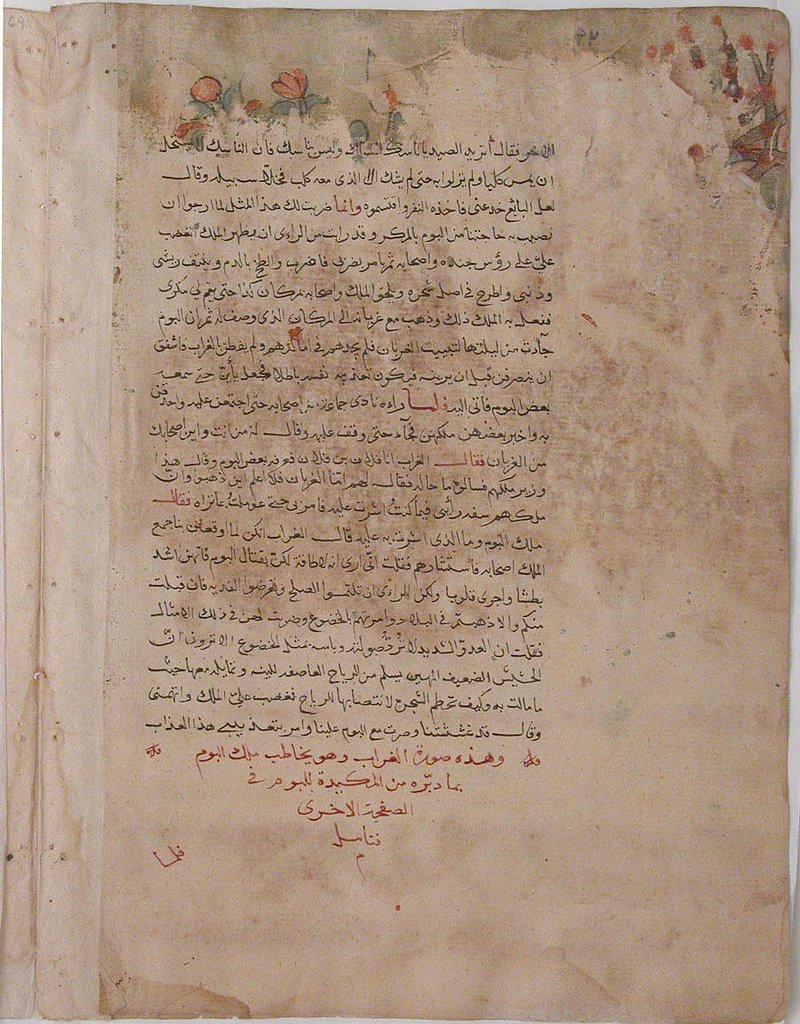 الاخر فقال أتريد الصيد يا ناسك وليس بناسك فان الناسك لا يستحل
ان يمس كلبا ولم يزالوا به حتى لم يشك ان الذى معه كلب فخلا سبيله وقال
لعل البائع خدعنى فاخذه النفر واقتسموه وانما ضربت لك هذا المثل لما ارجوا ان
نصيب به حاجتنا من البوم بالمكر وقد رايت من الراءى ان يظهر الملك الغضب
علىّ على رؤس جنده واصحابه ثم يامر بضربى فاضرب والطخ بالدم وينتف ريشى
وذنبى واطرح فى اصل شجره ويلحق الملك واصحابه بمكان كذا حتى يتم لى مكرى
ففعل به الملك ذلك وذهب مع غربانه الى المكان الذى وصف له ثم ان البوم
جآءت من ليلتها لتبييت الغربان فلم يجدهم فى اماكنهم ولم يفطن الغراب فاشفق
ان ينصرفن قبل ان يرينه فيكون تعذيبه نفسه باطلا فجعل يأن حتى سمعه
بعض البوم فاتى اليه فلما رءاه نادى جماعة من اصحابه حتى اجتمعن عليه واحدقن
به واخبر بعضهن ملكهن فجآء حتى وقف عليه وقال له من انت واين اصحابك
من الغربان فقال الغراب انا فلان بن فلان فعرفه بعض البوم وقال هذا
وزير ملكهم فسالوه ما حاله فقال لهم امّا الغربان فلا اعلم اين ذهبن وان
ملكهم سفه رأيى فيما كنت اشرت عليه فامر بى حتى عوملت بما تراه فقال
ملك البوم وما الذى اشرت به عليه قال الغراب انكن لما اوقعتن بنا جمع
الملك اصحابه فاستشارهم فقلت انّى ارى انه لا طاقة لكن بقتال البوم فانهن اشد
بطشا واجرى قلوبا ولكن الراءى ان تلتمسوا الصلح وتعرضوا الفديه فان قبلت
منكم والا ذهبتم فى البلاد وامرتهم بالخضوع وضربت لهن فى ذلك الامثال
فقلت ان العدوّ الشديد لا تُردّ صولته وباسه بمثل الخضوع الا ترون انّ
الحشيش الضعيف المهين يسلم من الرياح العاصفه للينه وتمايله معها حيث
ما مالت به وكيف تحطم الشجره لانتصابها للرياح فغضب علىّ الملك واتهمنى
وقال قد غششتنا وصرت مع البوم علينا وامر بتعذيبى هذا العذاب
وهذه صورة الغراب وهو يخاطب ملك البوم
بما دبّره من المكيدة للبوم فى
الصفحة الاخرى
فتامل
م
فلما